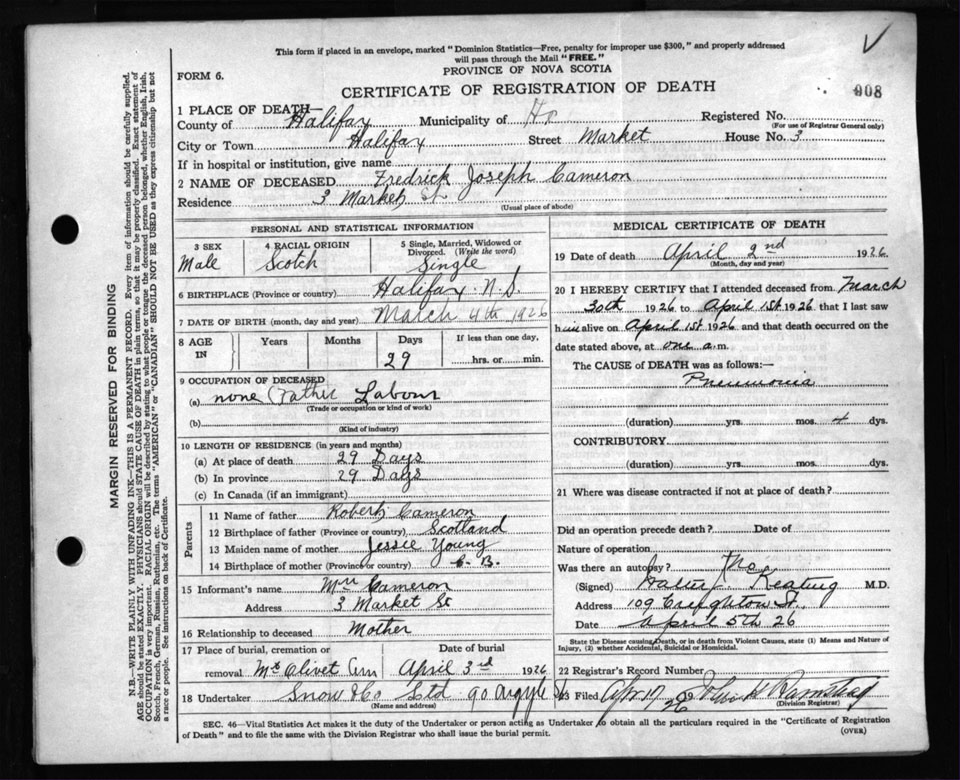 This form if placed in an envelope, marked "Dominion Statistics—Free, penalty for improper use $300," and properly addressed
will pass through the Mail "FREE."
PROVINCE OF NOVA SCOTIA
FORM 6.
CERTIFICATE OF REGISTRATION OF DEATH
908
1 PLACE OF DEATH—
County of Halifax Municipality of Registered No.
(For use of Registrar General only)
City or Town Halifax Street Market House No. 3
If in hospital or institution, give name
2 NAME OF DECEASED Fredrick Joseph Cameron
Residence 3 Market St
(Usual place of abode)
PERSONAL AND STATISTICAL INFORMATION
3 SEX
Male
4 RACIAL ORIGIN
Scotch
5 Single, Married, Widowed or
Divorced. (Write the word)
Single
6 BIRTHPLACE (Province or country) Halifax N.S.
7 DATE OF BIRTH (month, day and year) March 4th 1926
8 AGE
IN
Years
Months
Days
29
If less than one day,
hrs. or min.
9 OCCUPATION OF DECEASED
(a) none (Father Labour
(Trade or occupation or kind of work)
(b)
(Kind of industry)
10 LENGTH OF RESIDENCE (in years and months)
(a) At place of death 29 Days
(b) In province 29 Days
(c) In Canada (if an immigrant)
Parents
11 Name of father Robert Cameron
12 Birthplace of father (Province or country) Scotland
13 Maiden name of mother Jessie Young
14 Birthplace of mother (Province or country) C. B.
15 Informant's name Mrs Cameron
Address 3 Market St
16 Relationship to deceased Mother
17 Place of burial, cremation or Date of burial
removal Mt Olivet Cem April 3rd 1926
18 Undertaker Snow & Co Ltd 90 Argyle St
(Name and address)
MEDICAL CERTIFICATE OF DEATH
19 Date of death April 2nd 1926
(Month, day and year)
20 I HEREBY CERTIFY that I attended deceased from March
30th 1926 to April 1st 1926 that I last saw
him alive on April 1st 1926 and that death occurred on the
date stated above, at one a.m.
The CAUSE of DEATH was as follows:—
Pneumonia
(duration) yrs. mos. 4 dys.
CONTRIBUTORY
(duration) yrs. mos. dys.
21 Where was disease contracted if not at place of death?
Did an operation precede death? Date of
Nature of operation
Was there an autopsy? No
(Signed) Walter J. Keating M.D.
Address 109 Creighton St.
Date April 5th 26
State the Disease causing Death, or in death from Violent Causes, state (1) Means and Nature of
Injury, (2) whether Accidental, Suicidal or Homicidal.
22 Registrar's Record Number
23 Filed Apr 17 1926
(Division Registrar)
SEC. 46—Vital Statistics Act makes it the duty of the Undertaker or person acting as Undertaker to obtain all the particulars required in the "Certificate of Registration
of Death" and to file the same with the Division Registrar who shall issue the burial permit.
(OVER)
MARGIN RESERVED FOR BINDING
N.B.—WRITE PLAINLY WITH UNFADING INK—THIS IS A PERMANENT RECORD. Every item of information should be carefully supplied.
AGE should be stated EXACTLY. PHYSICIANS should STATE CAUSE OF DEATH in plain terms, so that it may be properly classified. Exact statement of
OCCUPATION is very important. RACIAL ORIGIN will be described by stating to what people or tongue the deceased person belonged, whether English, Irish,
Scotch, French, German, Russian, Ruthenian, etc. The terms "AMERICAN" or "CANADIAN" SHOULD NOT BE USED as they express citizenship but not
a race or people. See instructions on back of Certificate.